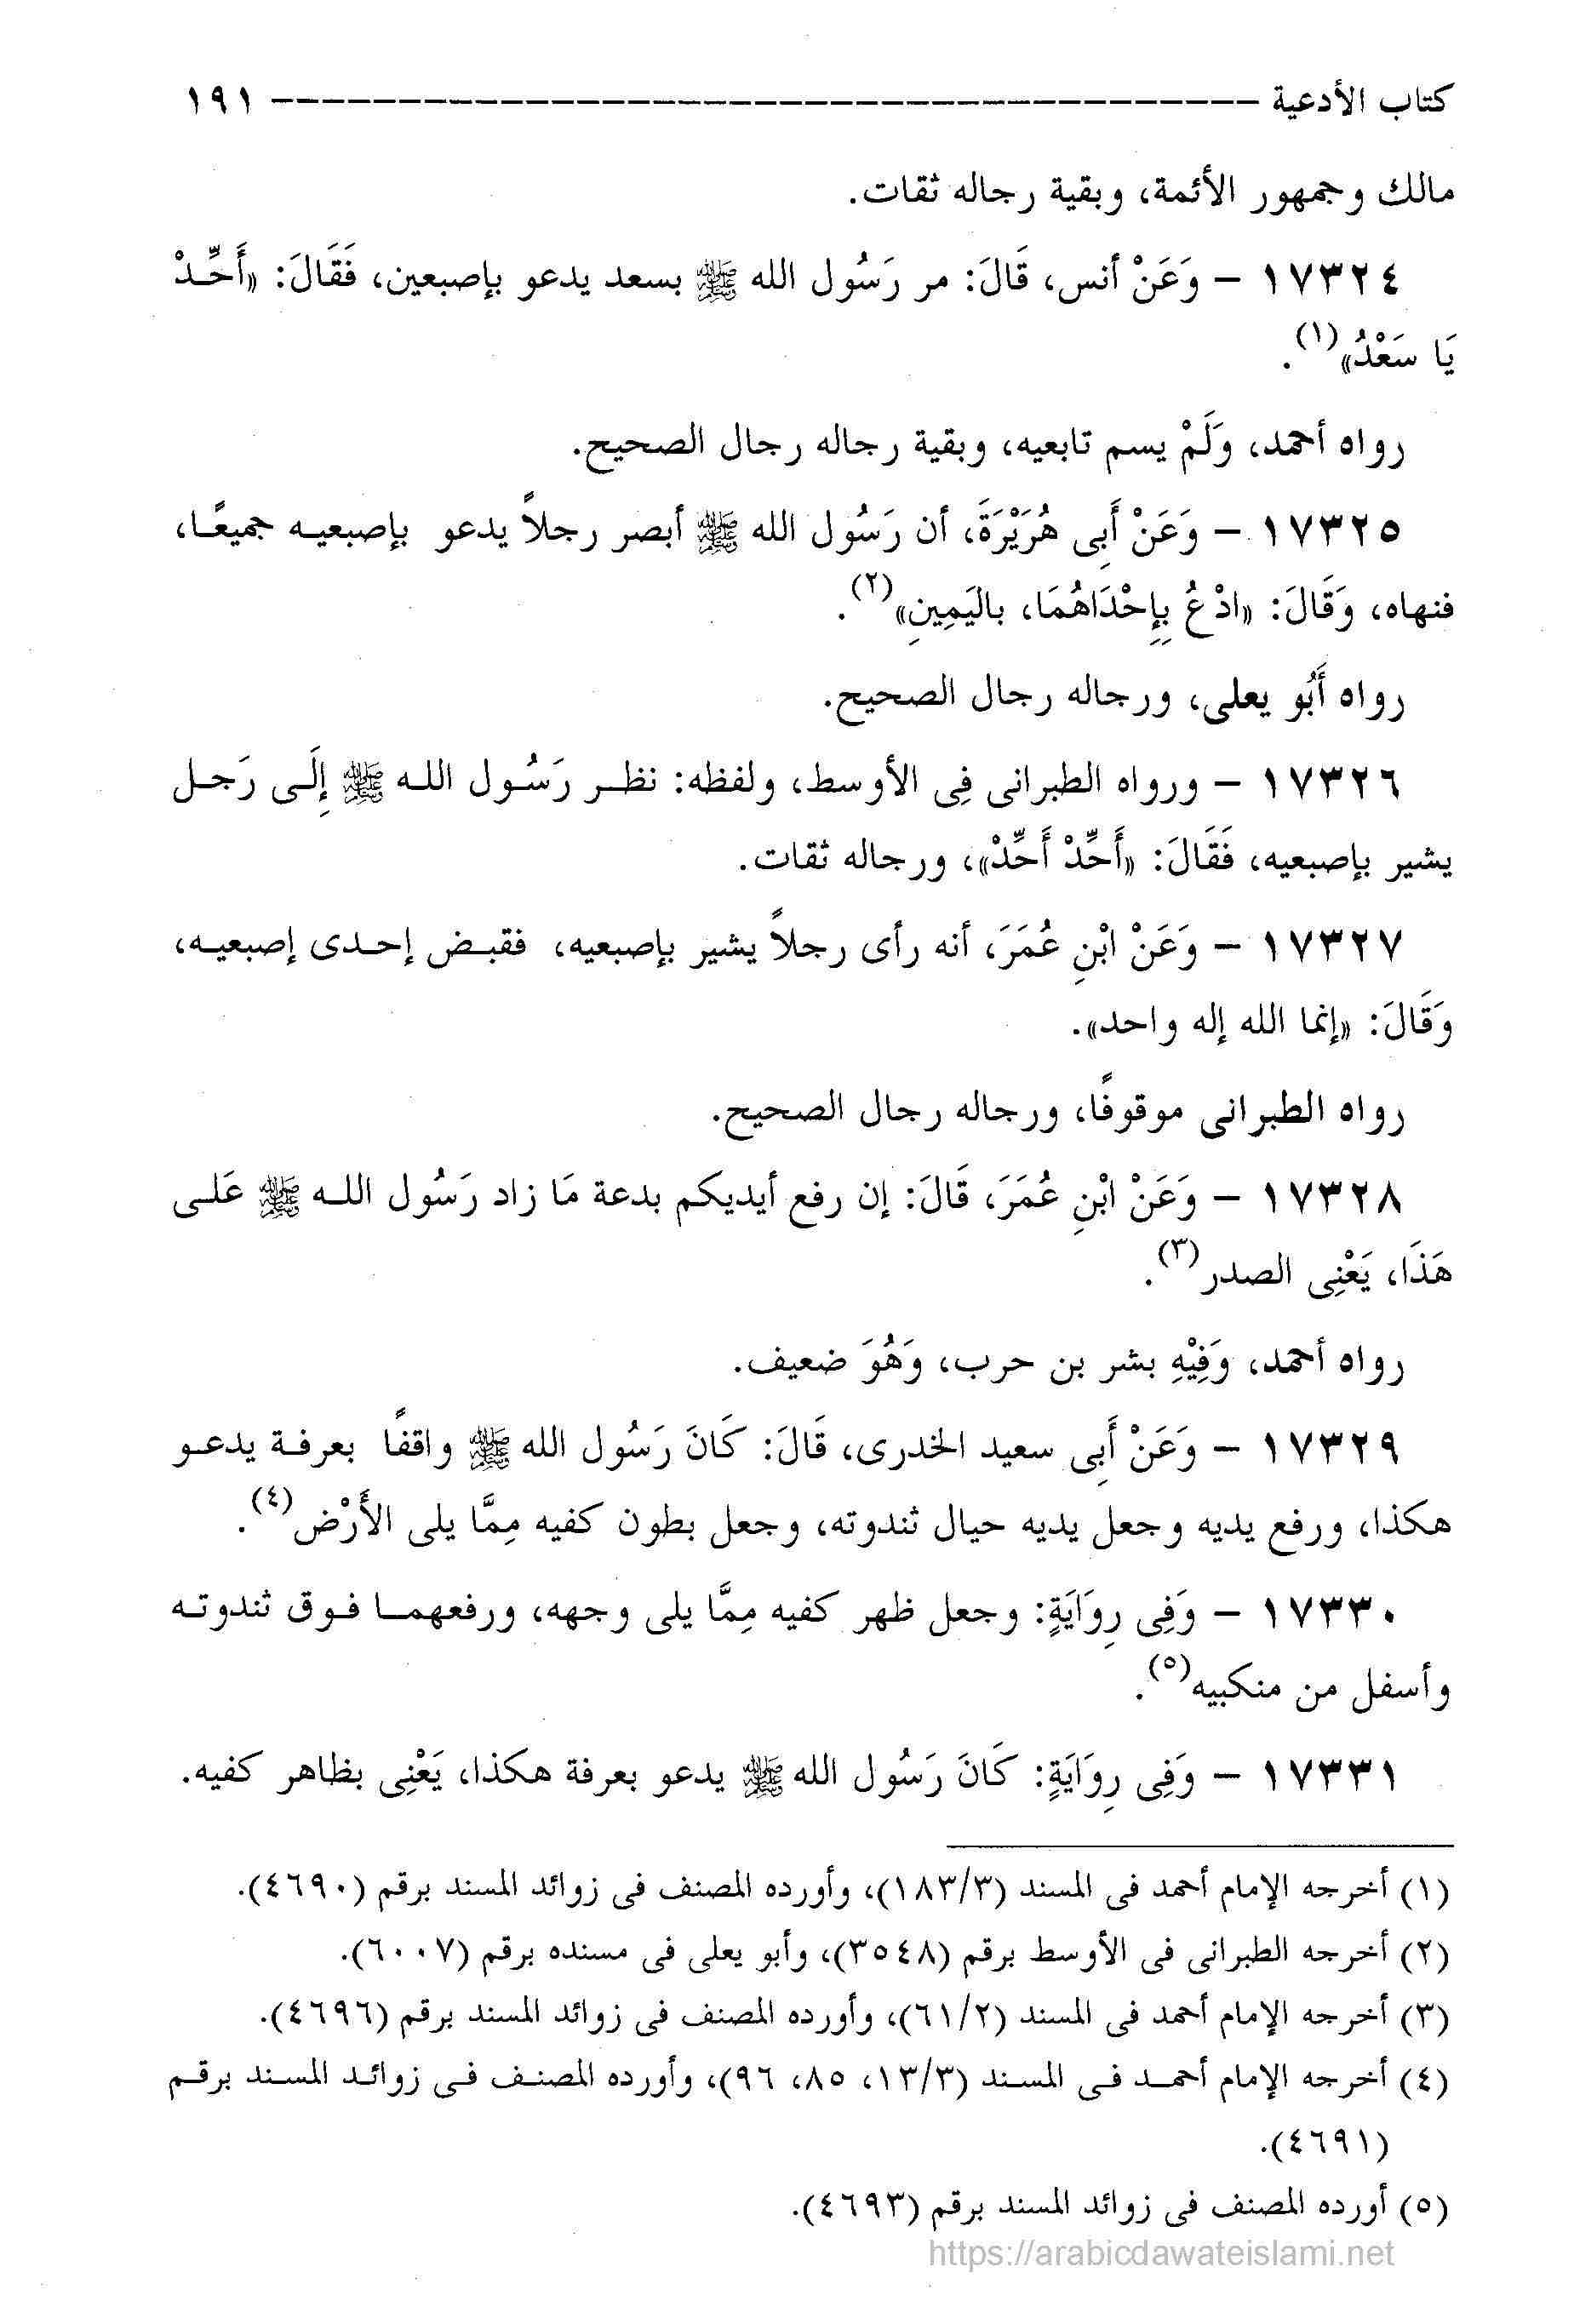 كتاب الأدعية ---------------------------------------- ١٩١
مالك وجمهور الأئمة، وبقية رجاله ثقات.
١٧٣٢٤ – وَعَنْ أنس، قَالَ: مر رَسُول الله ﷺ بسعد يدعو بإصبعين، فَقَالَ: «أَحِّدْ
يَا سَعْدُ»(١).
رواه أحمد، وَلَمْ يسم تابعيه، وبقية رجاله رجال الصحيح.
١٧٣٢٥ – وَعَنْ أَبِى هُرَيْرَةَ، أن رَسُول الله ﷺ أبصر رجلاً يدعو بإصبعيه جميعًا،
فنهاه، وَقَالَ: «ادْعُ بِإِحْدَاهُمَا، باليَمِينِ»(٢).
رواه أَبُو يعلى، ورجاله رجال الصحيح.
١٧٣٢٦ – ورواه الطبرانى فِى الأوسط، ولفظه: نظر رَسُول الله ﷺ إِلَى رَجل
يشير بإصبعيه، فَقَالَ: «أَحِّدْ أَحِّدْ»، ورجاله ثقات.
١٧٣٢٧ – وَعَنْ ابْنِ عُمَرَ، أنه رأى رجلاً يشير بإصبعيه، فقبض إحدى إصبعيه،
وَقَالَ: «إنما الله إله واحد».
رواه الطبرانى موقوفًا، ورجاله رجال الصحيح.
١٧٣٢٨ – وَعَنْ ابْنِ عُمَرَ، قَالَ: إن رفع أيديكم بدعة مَا زاد رَسُول الله ﷺ عَلى
هَذَا، يَعْنِى الصدر(٣).
رواه أحمد، وَفِيْهِ بشر بن حرب، وَهُوَ ضعيف.
١٧٣٢٩ – وَعَنْ أَبِى سعيد الخدرى، قَالَ: كَانَ رَسُول الله ﷺ واقفًا بعرفة يدعو
هكذا، ورفع يديه وجعل يديه حيال ثندوته، وجعل بطون كفيه مِمَّا يلى الأَرْض(٤).
١٧٣٣٠ – وَفِى رِوَايَةٍ: وجعل ظهر كفيه مِمَّا يلى وجهه، ورفعهما فوق ثندوته
وأسفل من منكبيه(٥).
١٧٣٣١ – وَفِى رِوَايَةٍ: كَانَ رَسُول الله ﷺ يدعو بعرفة هكذا، يَعْنِى بظاهر كفيه.
(١) أخرجه الإمام أحمد فى المسند (١٨٣/٣)، وأورده المصنف فى زوائد المسند برقم (٤٦٩٠).
(٢) أخرجه الطبرانى فى الأوسط برقم (٣٥٤٨)، وأبو يعلى فى مسنده برقم (٦٠٠٧).
(٣) أخرجه الإمام أحمد فى المسند (٦١/٢)، وأورده المصنف فى زوائد المسند برقم (٤٦٩٦).
(٤) أخرجه الإمام أحمد فى المسند (١٣/٣، ٨٥، ٩٦)، وأورده المصنف فى زوائد المسند برقم
(٤٦٩١).
(٥) أورده المصنف فى زوائد المسند برقم (٤٦٩٣).
https://arabicdawateislami.net